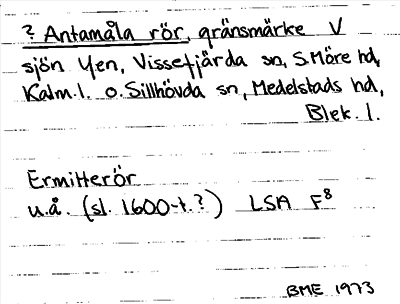 ? Antamåla rör, gränsmärke V
sjön Yen, Vissefjärda sn, S.Möre hd,
Kalm.l. o. Sillhövda sn, Medelstads hd,
Blek. l.
Ermitterör
u.å. (sl. 1600-t.?) LSA F⁸
BME 1973